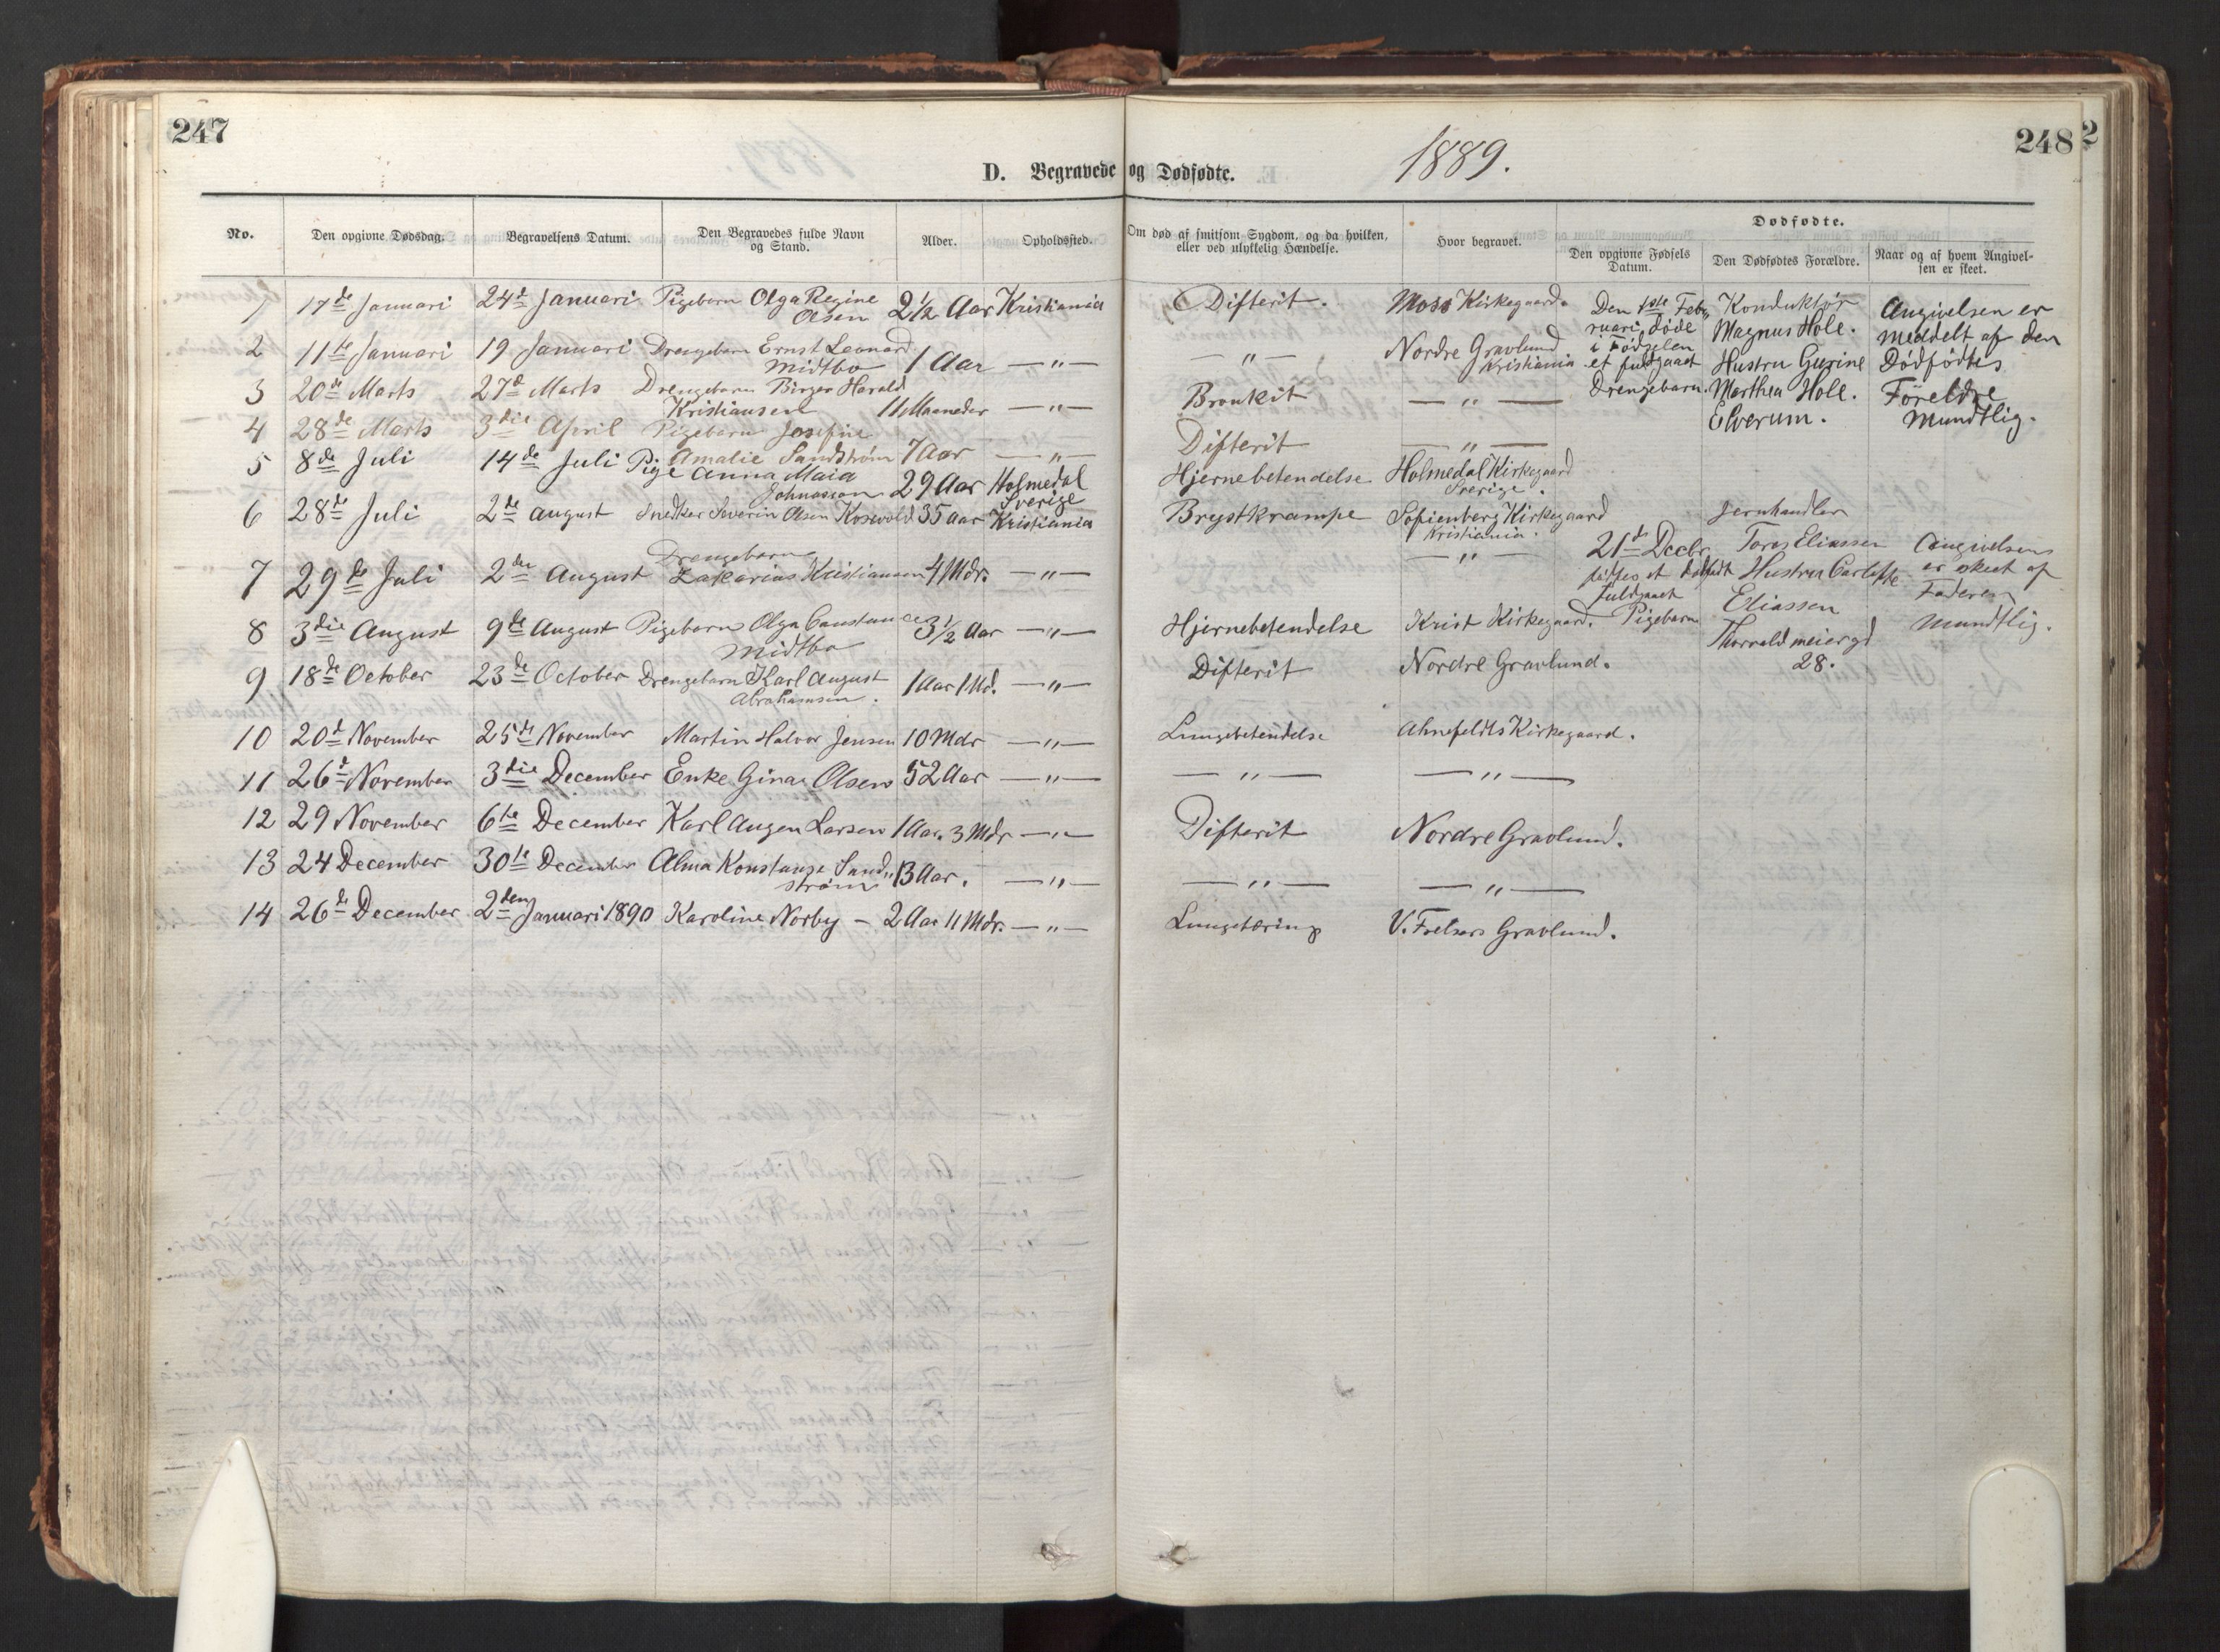 247
248
2
D. Begravede og Dødfødte.
1889.
No. Den opgivne Dødsdag. Begravelsens Datum. Den Begravedes fulde Navn og Stand. Alder. Opholdssted. Om død af smitsom Sygdom, og da hvilken, eller ved ulykkelig Hændelse. Hvor begravet. Dødfødte. Den opgivne Fødsels Datum. Den Dødfødtes Forældre. Naar og af hvem Angivelsen er skeet.
1 17de Januari 24de Januari Pigebarn Olga Regine Olsen 2 1/2 Aar Kristiania Difterit. Moss Kirkegaard.
2 11te Januari 19 Januari Drengebarn Ernst Leonard Midtbo 1 Aar —"— —"— Nordre Gravlund Kristiania
3 20de Marts 27de Marts Drengebarn Birger Harald Kristiansen 11 Maaneder —"— Bronkit —"—
4 28de Marts 3die April Pigebarn Josefine Amalie Sandstrøm 7 Aar —"— Difterit —"—
5 8de Juli 14de Juli Pige Anna Maia Johnasson 29 Aar Holmedal Sverige Hjernebetendelse Holmedal Kirkegaard Sverige.
6 28de Juli 2de August Snedker Severin Olsen Kosevold 35 Aar Kristiania Brystkrampe Sofienberg Kirkegaard Kristiania.
7 29de Juli 2den August Drengebarn Zakarias Kristiansen 4 Mdr. —"— —"—
8 3die August 9de August Pigebarn Olga Constance Midtbo 3 1/2 Aar —"— Hjernebetendelse Krist Kirkegaard.
9 18de October 23de October Drengebarn Karl August Abrahamsen. 1 Aar 1 Md. —"— Difterit Nordre Gravlund.
10 20de November 25de November Martin Halvor Jensen 10 Mdr —"— Lungebetendelse Ahnefeldts Kirkegaard.
11 26de November 3die December Enke Gina Olsen 52 Aar —"— —"— —"—
12 29 November 6te December Karl Augen Larsen 1 Aar. 3 Mdr —"— Difterit Nordre Gravlund.
13 24 December 30te December Alma Konstanse Sandstrøm 13 Aar. —"— —"— —"—
14 26de December 2den Januari 1890 Karoline Norby – 2 Aar 11 Mdr. —"— Lungetæring V. Frelsers Gravlund.
Den 1ste Feb
ruari døde
i Fødselen
et fuldgaaet
Drengebarn.
Konduktør
Magnus Hole.
Hustru Gurine
Marthea Hole.
Elverum.
Angivelsen er
meddelt af den
Dødfødtes
Foreldre
Mundtlig.
21de Decbr
fødtes et dødfødt
fuldgaaet
Pigebarn
Jernhandler
Tores Eliassen
Hustru
Eliassen
Thorvald meiergd
28.
Angivelsen
er skeet af
Faderen
Mundtlig.